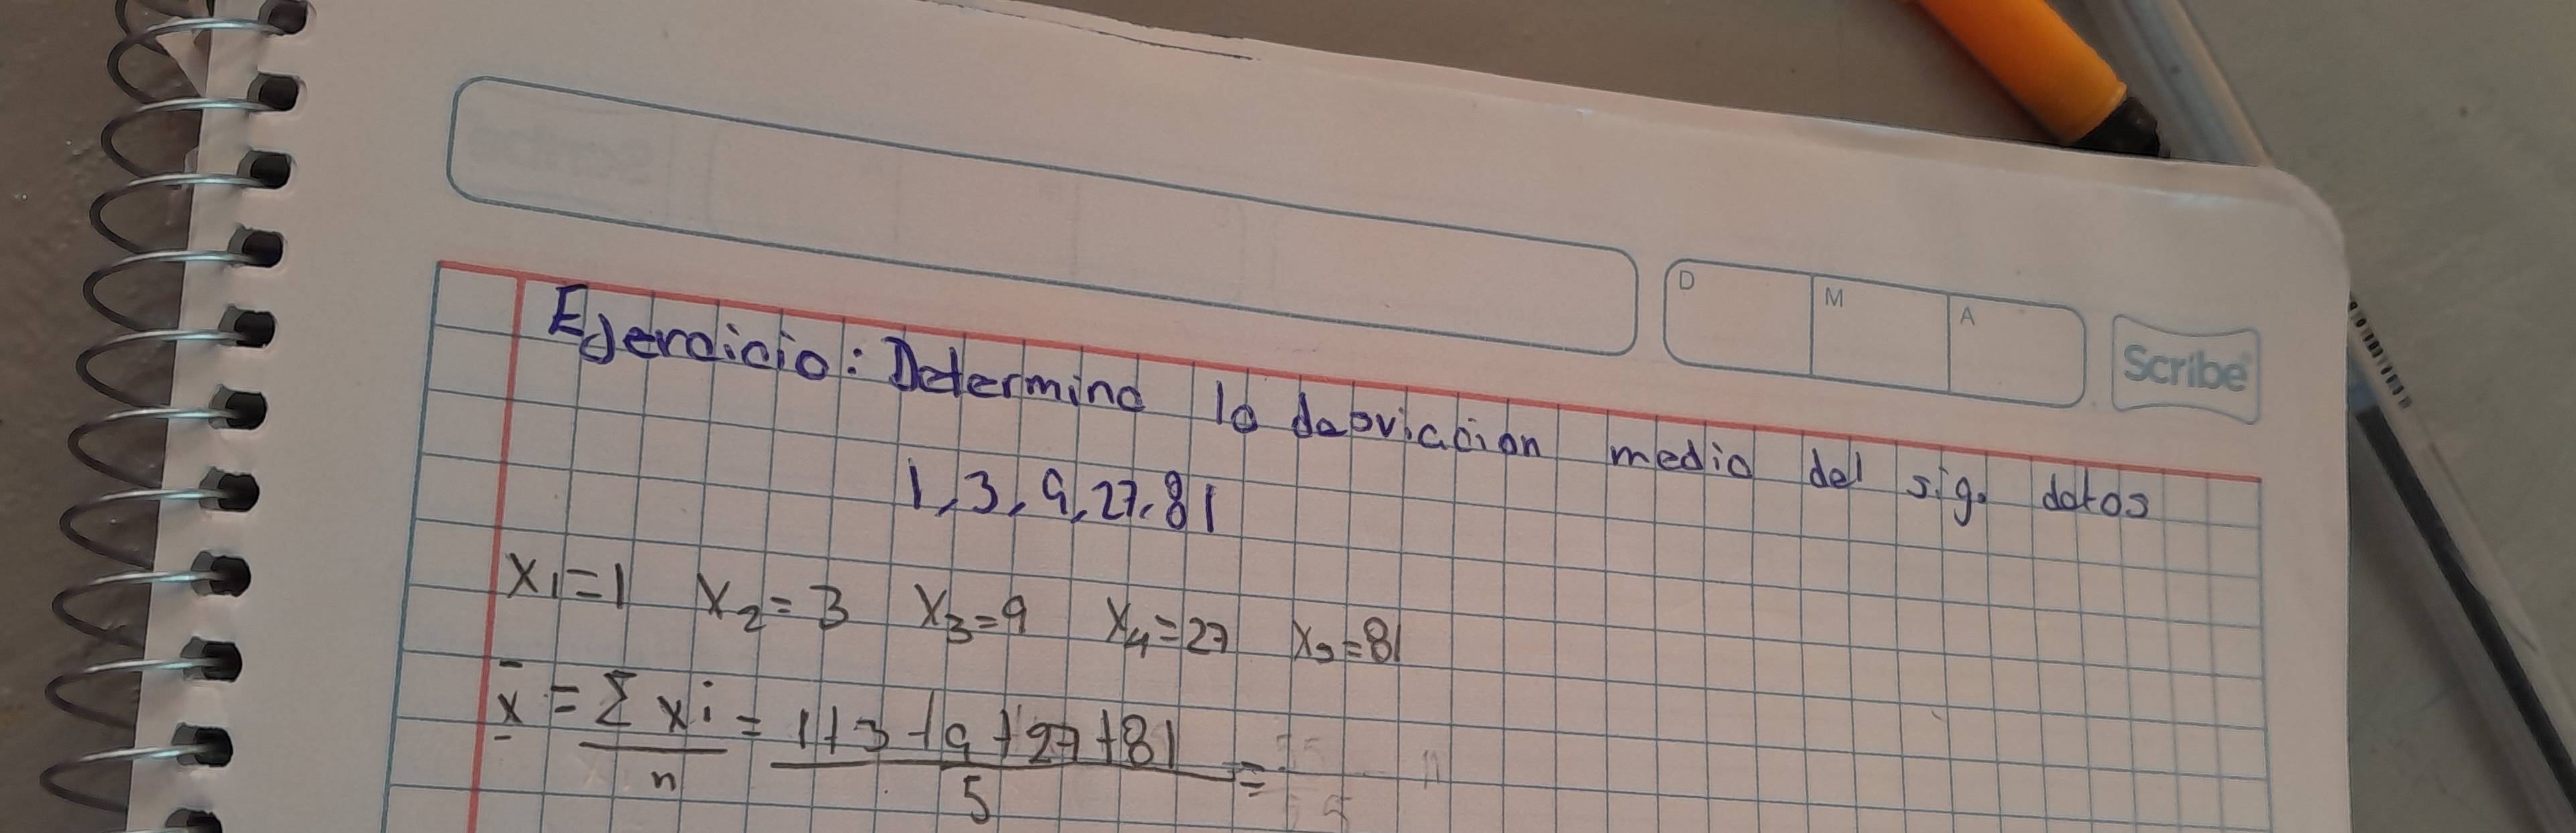 D M A
Scribe
Ejercicio: Determina la desviacion media del sig. datos
1, 3, 9, 27, 81
X1=1 X2=3 X3=9 X4=27 X5=81
x̄ = Σxi/n = 1+3+9+27+81/5 =